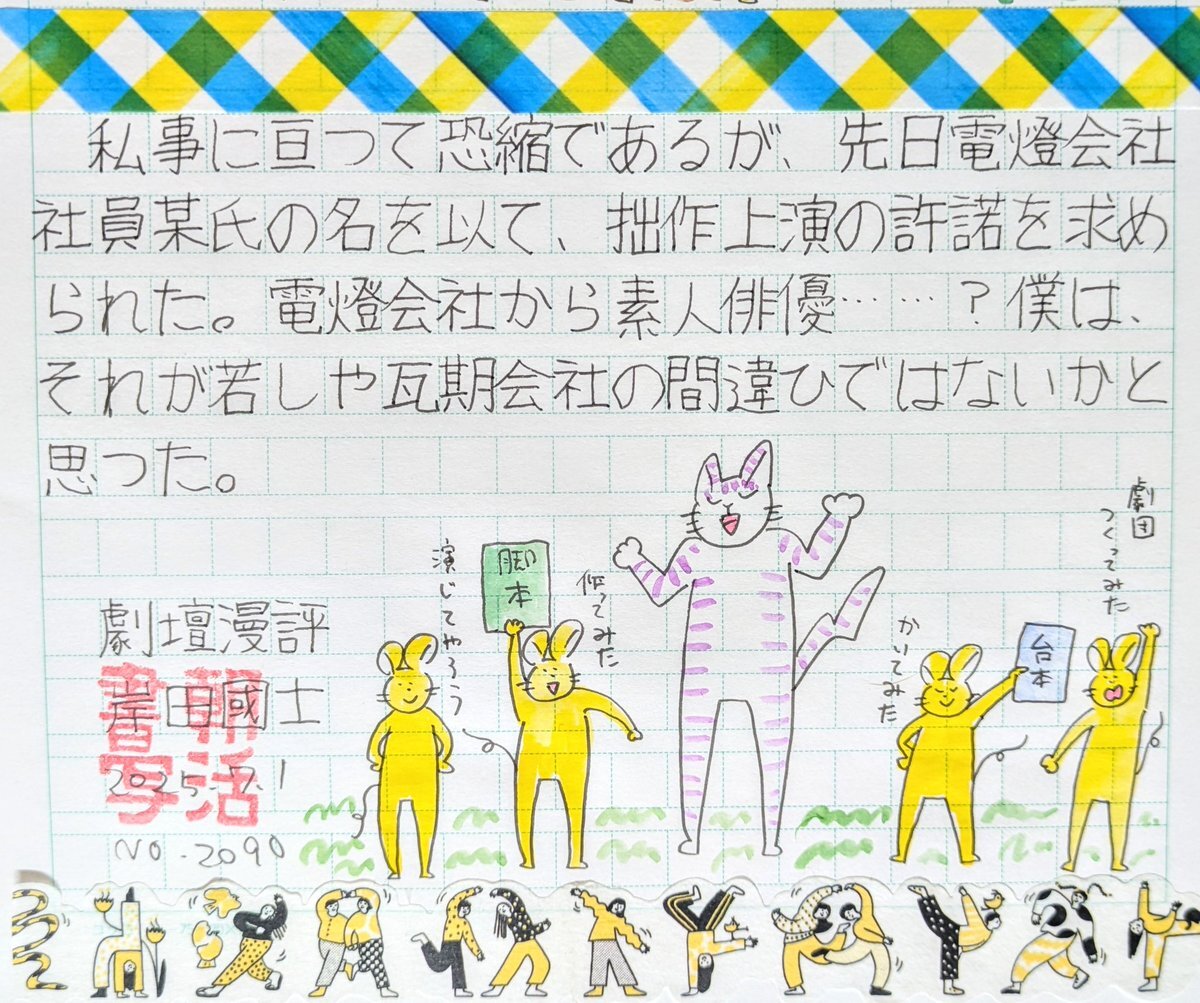 私事に亘つて恐縮であるが、先日電燈会社
社員某氏の名を以て、拙作上演の許諾を求め
られた。電燈会社から素人俳優……？僕は、
それが若しや瓦期会社の間違ひではないかと
思つた。
劇団
つくってみた
演じてやろう
脚本
作ってみた
かいてみた
台本
劇壇漫評
岸田國士
書写
朝活
2025.7.1
NO.2090